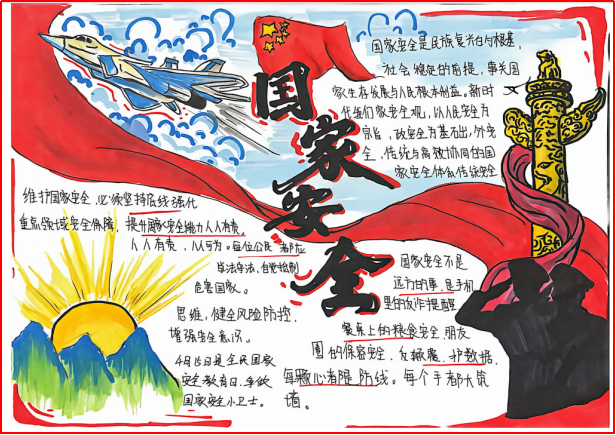 国家安全
国家安全是民族复兴的根基,
社会稳定的前提,事关国
家生存发展与人民根本利益。新时
代我们家安全观,以人民安全为
宗旨,政安全为基出,外安
全,传统与高效协同的国
家安全体系传统安全
维护国家安全,必须坚持底线强化
重点领域安全保障,提升国家安全能力人人有责,
人人有责,从可为。每位公民都应
危害国家。
思维,健全风险防控,
增强安全意识。
4月15日是全民国家
安全教育日,争做
国家安全小卫士。
国家安全不是
远方的事,是手机
里的反诈提醒
餐桌上的粮食安全,朋友
圈的保密安全,护数据,
每颗心者隄防线。每个手都大筑
墙。